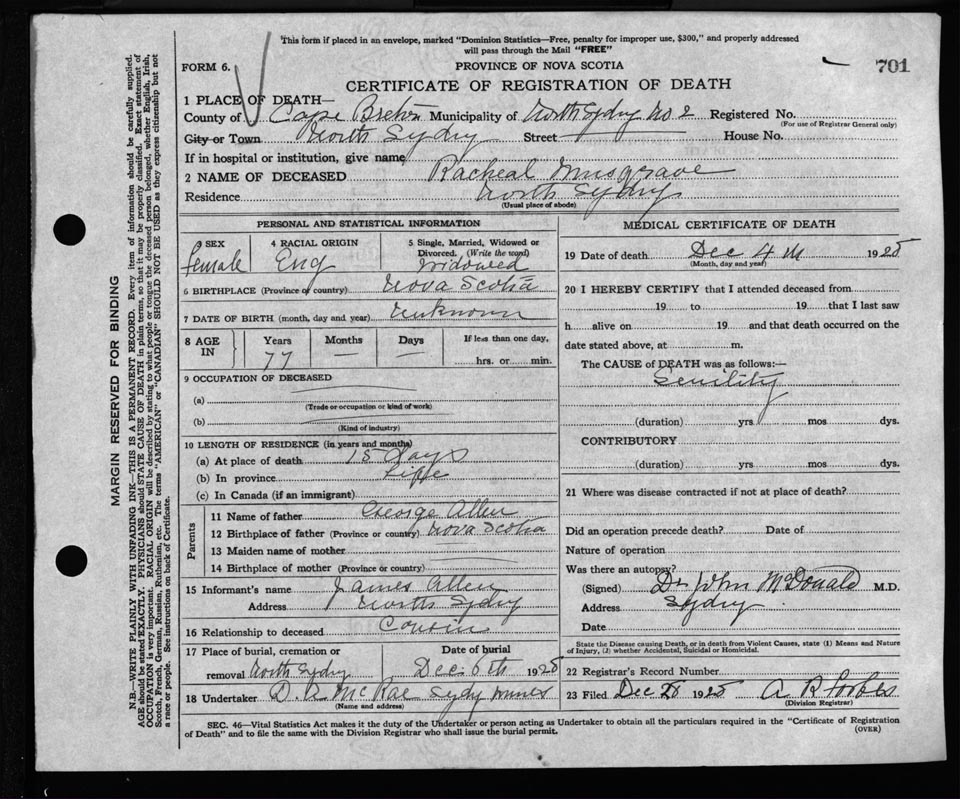 This form if placed in an envelope, marked "Dominion Statistics—Free, penalty for improper use, $300," and properly addressed
will pass through the Mail "FREE"
FORM 6.
PROVINCE OF NOVA SCOTIA
701
CERTIFICATE OF REGISTRATION OF DEATH
1 PLACE OF DEATH—
County of Cape Breton Municipality of North Sydny No 2 Registered No.
(For use of Registrar General only)
City or Town North Sydny Street House No.
If in hospital or institution, give name
2 NAME OF DECEASED Racheal Musgrave
Residence North Sydny
(Usual place of abode)
PERSONAL AND STATISTICAL INFORMATION
3 SEX female
4 RACIAL ORIGIN Eng
5 Single, Married, Widowed or
Divorced. (Write the word)
Widowed
6 BIRTHPLACE (Province or country) Nova Scotia
7 DATE OF BIRTH (month, day and year) Unknown
8 AGE IN
Years Months Days If less than one day,
77 — — hrs. or min.
9 OCCUPATION OF DECEASED
(a)
(Trade or occupation or kind of work)
(b)
(Kind of industry)
10 LENGTH OF RESIDENCE (in years and months)
(a) At place of death 15 days
(b) In province Liffe
(c) In Canada (if an immigrant)
Parents
11 Name of father George Allen
12 Birthplace of father (Province or country) Nova Scotia
13 Maiden name of mother
14 Birthplace of mother (Province or country)
15 Informant's name James Allen
Address North Sydny
16 Relationship to deceased Cousin
17 Place of burial, cremation or
removal North Sydny
Date of burial
Dec 6th 1925
18 Undertaker D. A McRae Sydny mines
(Name and address)
MEDICAL CERTIFICATE OF DEATH
19 Date of death Dec 4 1925
(Month, day and year)
20 I HEREBY CERTIFY that I attended deceased from
19 to 19 that I last saw
h alive on 19 and that death occurred on the
date stated above, at m.
The CAUSE of DEATH was as follows:—
Senility
(duration) yrs mos dys.
CONTRIBUTORY
(duration) yrs mos dys.
21 Where was disease contracted if not at place of death?
Did an operation precede death? Date of
Nature of operation
Was there an autopsy?
(Signed) Dr John McDonald M.D.
Address Sydny
Date
State the Disease causing Death, or in death from Violent Causes, state (1) Means and Nature
of Injury, (2) whether Accidental, Suicidal or Homicidal.
22 Registrar's Record Number
23 Filed Dec 1925 A R Forbes
(Division Registrar)
SEC. 46—Vital Statistics Act makes it the duty of the Undertaker or person acting as Undertaker to obtain all the particulars required in the "Certificate of Registration
of Death" and to file the same with the Division Registrar who shall issue the burial permit.
(OVER)
MARGIN RESERVED FOR BINDING
N.B.—WRITE PLAINLY WITH UNFADING INK—THIS IS A PERMANENT RECORD. Every item of information should be carefully supplied.
AGE should be stated EXACTLY. PHYSICIANS should STATE CAUSE OF DEATH in plain terms, so that it may be properly classified. Exact statement of
OCCUPATION is very important. RACIAL ORIGIN will be described by stating to what people or tongue the deceased person belonged, whether English, Irish,
Scotch, French, German, Russian, Ruthenian, etc. The terms "AMERICAN" or "CANADIAN" SHOULD NOT BE USED as they express citizenship but not
a race or people. See instructions on back of Certificate.